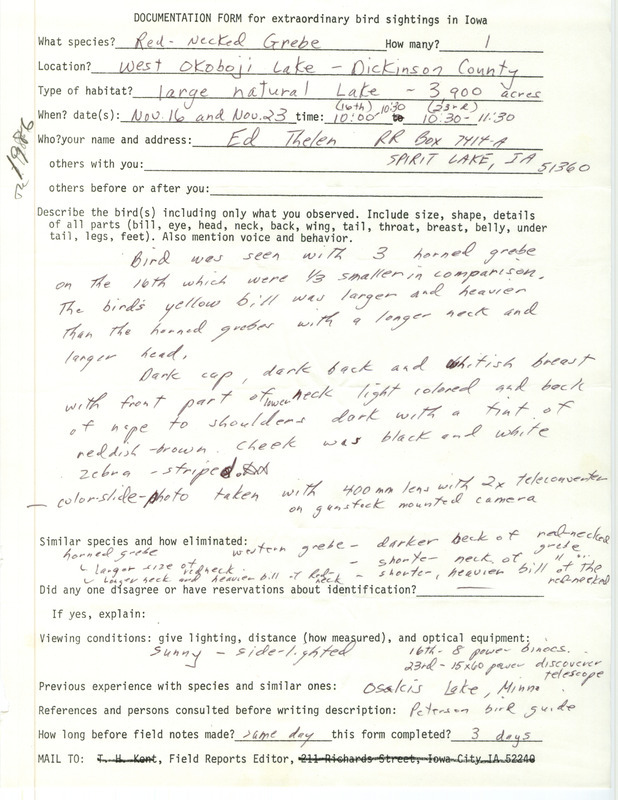 DOCUMENTATION FORM for extraordinary bird sightings in Iowa
What species? Red-Necked Grebe How many? 1
Location? West Okoboji Lake - Dickinson County
Type of habitat? large natural Lake ~ 3,900 acres
(16th) 10:30 (23rd)
When? date(s): Nov. 16 and Nov. 23 time: 10:00 to 10:30 - 11:30
1986
Who? your name and address: Ed Thelen RR Box 7414-A
SPIRIT LAKE, IA 51360
others with you:
others before or after you:
Describe the bird(s) including only what you observed. Include size, shape, details
of all parts (bill, eye, head, neck, back, wing, tail, throat, breast, belly, under
tail, legs, feet). Also mention voice and behavior.
Bird was seen with 3 horned grebe
on the 16th which were 1/3 smaller in comparison.
The bird's yellow bill was larger and heavier
than the horned grebes with a longer neck and
larger head.
Dark cap, dark back and whitish breast
with front part of lower neck light colored and back
of nape to shoulders dark with a tint of
reddish-brown. Cheek was black and white
zebra-striped.
- color-slide-photo taken with 400 mm lens with 2x teleconverter
on gunstock mounted camera
Similar species and how eliminated:
horned grebe western grebe - darker back of red-necked grebe
larger size of redneck - shorter neck of " "
longer neck and heavier bill of Red-neck - shorter, heavier bill of the red-necked
Did any one disagree or have reservations about identification? —
If yes, explain:
Viewing conditions: give lighting, distance (how measured), and optical equipment:
Sunny - side-lighted 16th - 8 power binocs.
23rd - 15x60 power discoverer telescope
Previous experience with species and similar ones: Osakis Lake, Minn.
References and persons consulted before writing description: Peterson bird guide
How long before field notes made? same day this form completed? 3 days
MAIL TO: T. H. Kent, Field Reports Editor, 211 Richards Street, Iowa City IA 52240